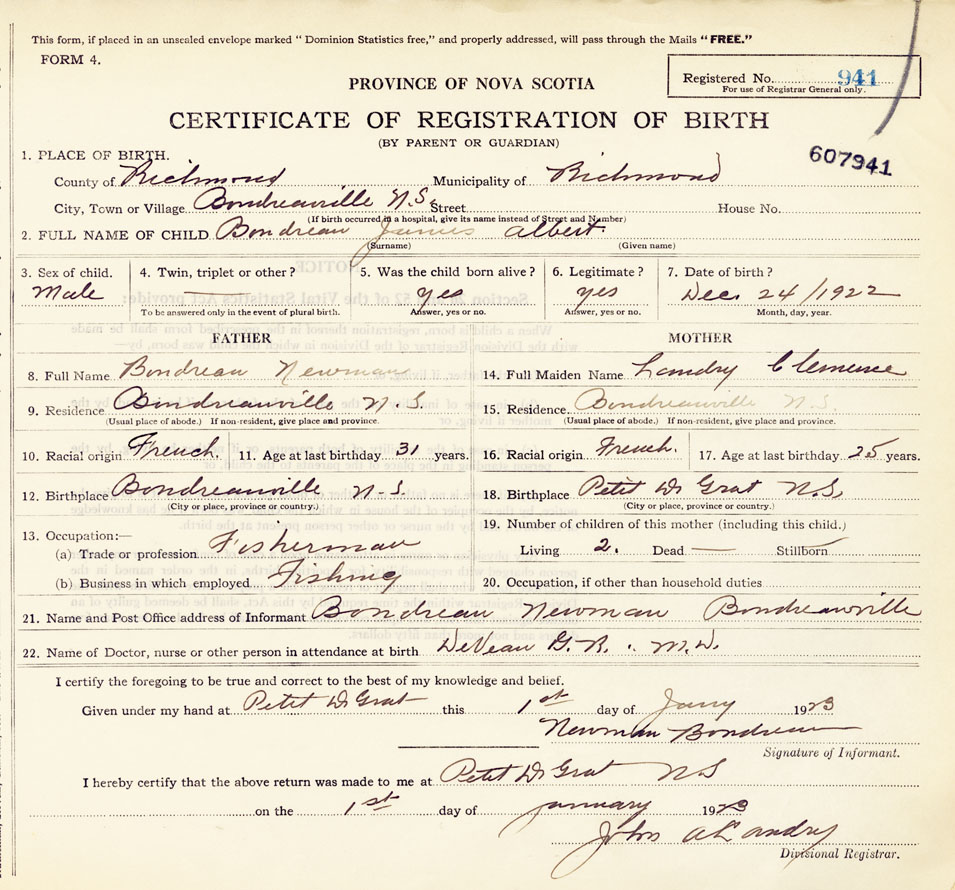 This form, if placed in an unsealed envelope marked "Dominion Statistics free," and properly addressed, will pass through the Mails "FREE."
FORM 4.
Registered No. 941
For use of Registrar General only.
PROVINCE OF NOVA SCOTIA
CERTIFICATE OF REGISTRATION OF BIRTH
(BY PARENT OR GUARDIAN)
607941
1. PLACE OF BIRTH.
County of Richmond Municipality of Richmond
City, Town or Village Boudreauville N.S. Street House No.
(If birth occurred in a hospital, give its name instead of Street and Number)
2. FULL NAME OF CHILD Boudreau James Albert
(Surname) (Given name)
3. Sex of child. 4. Twin, triplet or other? 5. Was the child born alive? 6. Legitimate? 7. Date of birth?
Male — yes yes Dec. 24/1922
To be answered only in the event of plural birth. Answer, yes or no. Answer, yes or no. Month, day, year.
FATHER MOTHER
8. Full Name Boudreau Newman 14. Full Maiden Name Landry Clemence
9. Residence Boudreauville N.S. 15. Residence Boudreauville N.S.
(Usual place of abode.) If non-resident, give place and province. (Usual place of abode.) If non-resident, give place and province.
10. Racial origin French. 11. Age at last birthday 31 years. 16. Racial origin French. 17. Age at last birthday 25 years.
12. Birthplace Boudreauville N.S. 18. Birthplace Petit De Grat N.S.
(City or place, province or country.) (City or place, province or country.)
19. Number of children of this mother (including this child.)
13. Occupation:—
(a) Trade or profession Fisherman Living 2. Dead — Stillborn
(b) Business in which employed Fishing 20. Occupation, if other than household duties
21. Name and Post Office address of Informant Boudreau Newman Boudreauville
22. Name of Doctor, nurse or other person in attendance at birth DeVeau G.R. M.D.
I certify the foregoing to be true and correct to the best of my knowledge and belief.
Given under my hand at Petit De Grat this 1st day of Jany 1923
Newman Boudreau
Signature of Informant.
I hereby certify that the above return was made to me at Petit De Grat N S
on the 1st day of January 1923
John A Landry
Divisional Registrar.